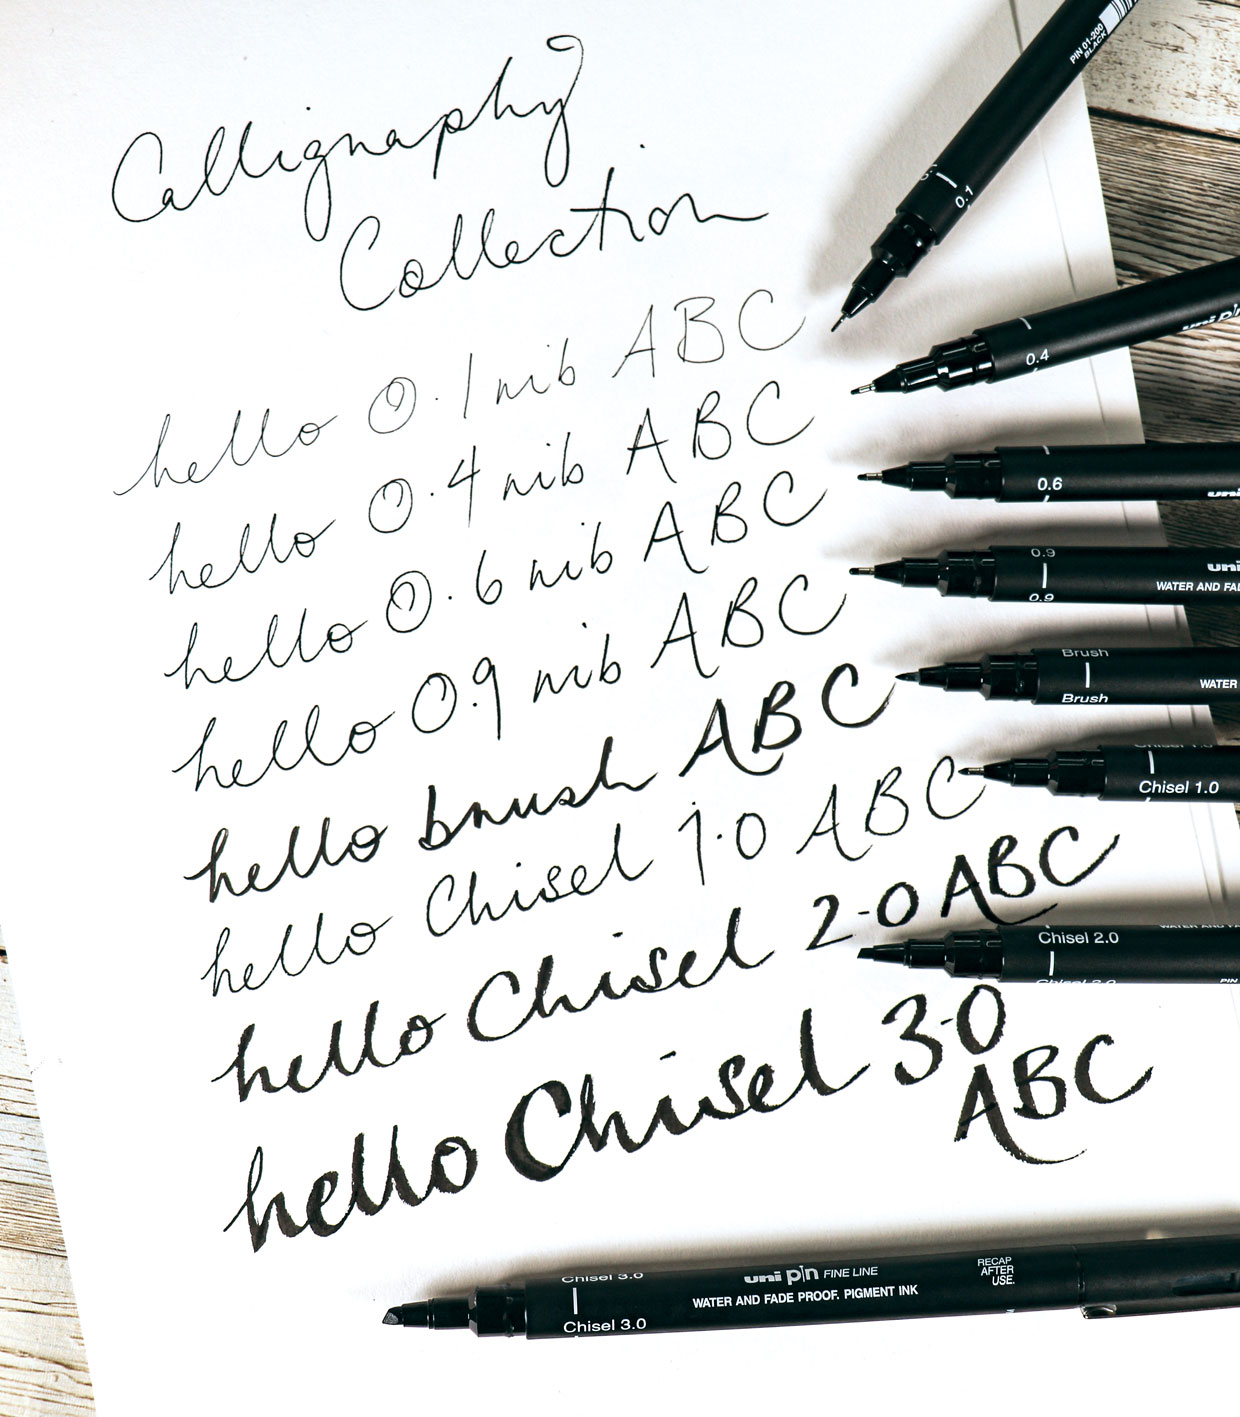 Calligraphy
Collection
hello 0.1 nib ABC
hello 0.4 nib ABC
hello 0.6 nib ABC
hello 0.9 nib ABC
hello brush ABC
hello Chisel 1.0 ABC
hello Chisel 2.0 ABC
hello Chisel 3.0
ABC
PIN 01-200
BLACK
0.1
0.4
uni pin
0.6
uni
0.9
uni
WATER AND FA
0.9
Brush
WATER
Brush
Chisel 1.0
Chisel 1.0
WATER AND FA
Chisel 2.0
PIN
Chisel 2.0
Chisel 3.0
uni pin FINE LINE
RECAP
AFTER
USE.
WATER AND FADE PROOF. PIGMENT INK
Chisel 3.0